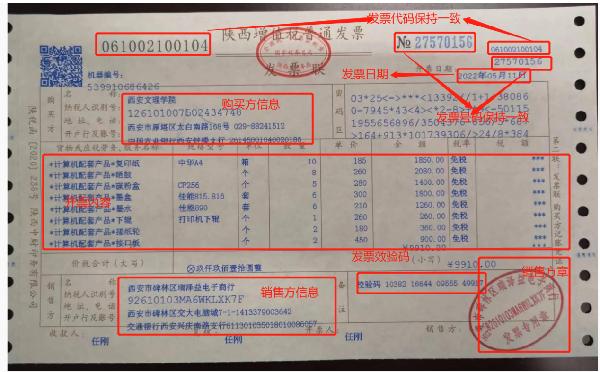 发票代码保持一致
061002100104
陕西增值税普通发票
№ 27570156
061002100104
27570156
发票联
开票日期
发票日期
2022年05月11日
机器编号:
539910686426
购买方
名称:
纳税人识别号:
地址、电话:
开户行及账号:
西安文理学院
购买方信息
西安市雁塔区太白南路168号 029-88241512
密码区
发票号码保持一致
货物或应税劳务、服务名称
规格型号
单位
数量
单价
金额
税率
税额
*计算机配套产品*复印纸 中华A4 箱 10 185 1850.00 免税 ***
*计算机配套产品*硒鼓 个 8 260 2080.00 免税 ***
*计算机配套产品*碳粉盒 CP256 个 5 280 1400.00 免税 ***
*计算机配套产品*墨盒 佳能815.816 套 6 300 1800.00 免税 ***
*计算机配套产品*墨水 佳能890 套 6 210 1260.00 免税 ***
*计算机配套产品*下辊 打印机下辊 个 1 260 260.00 免税 ***
*计算机配套产品*搓纸轮 个 2 180 360.00 免税 ***
*计算机配套产品*接口板 个 2 450 900.00 免税 ***
开票内容
¥9910.00
发票效验码
价税合计(大写)
⊗玖仟玖佰壹拾圆整
(小写)
¥9910.00
销售方章
销售方
名称:
纳税人识别号:
地址、电话:
开户行及账号:
西安市碑林区瑞泽益电子商行
92610103MA6WKLXK7F
销售方信息
西安市碑林区交大电脑城7-1-1413379003642
交通银行西安兴庆南路支行611301035018010086057
校验码 10282 16644 09555 49917
收款人:
任刚
任刚
开票人:
任刚
销售方:
发票专用章